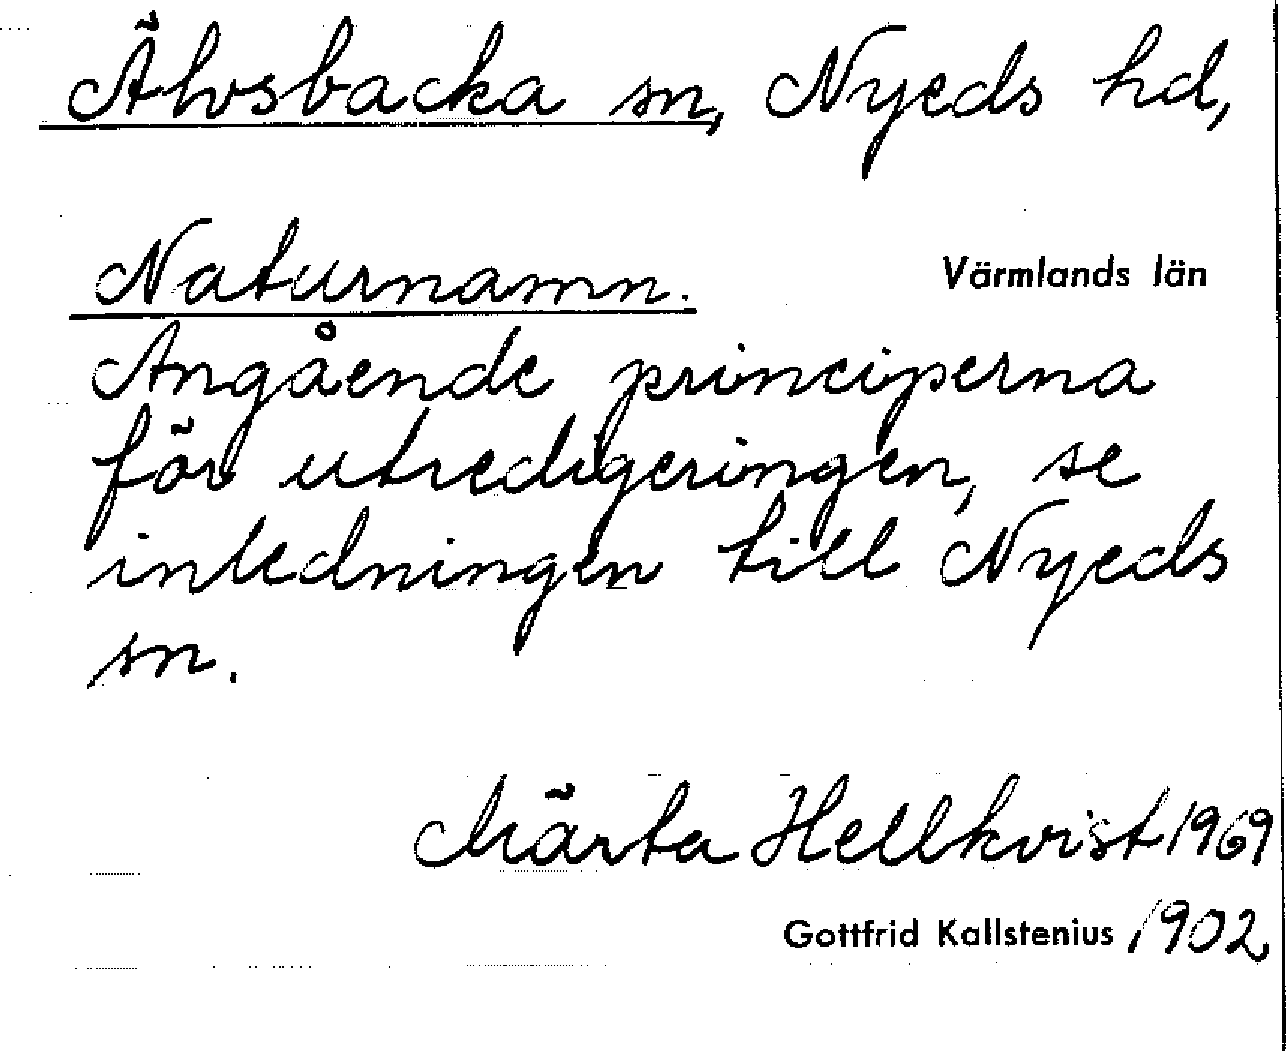 Älvsbacka sn, Nyeds hd,
Naturnamn.
Värmlands län
Angående principerna
för utredigeringen, se
inledningen till Nyeds
sn.
Märta Hellkvist 1969
Gottfrid Kallstenius 1902